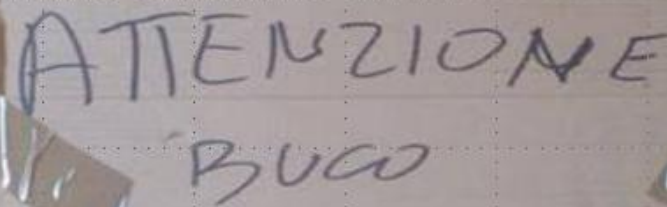 ATTENZIONE
BUCO